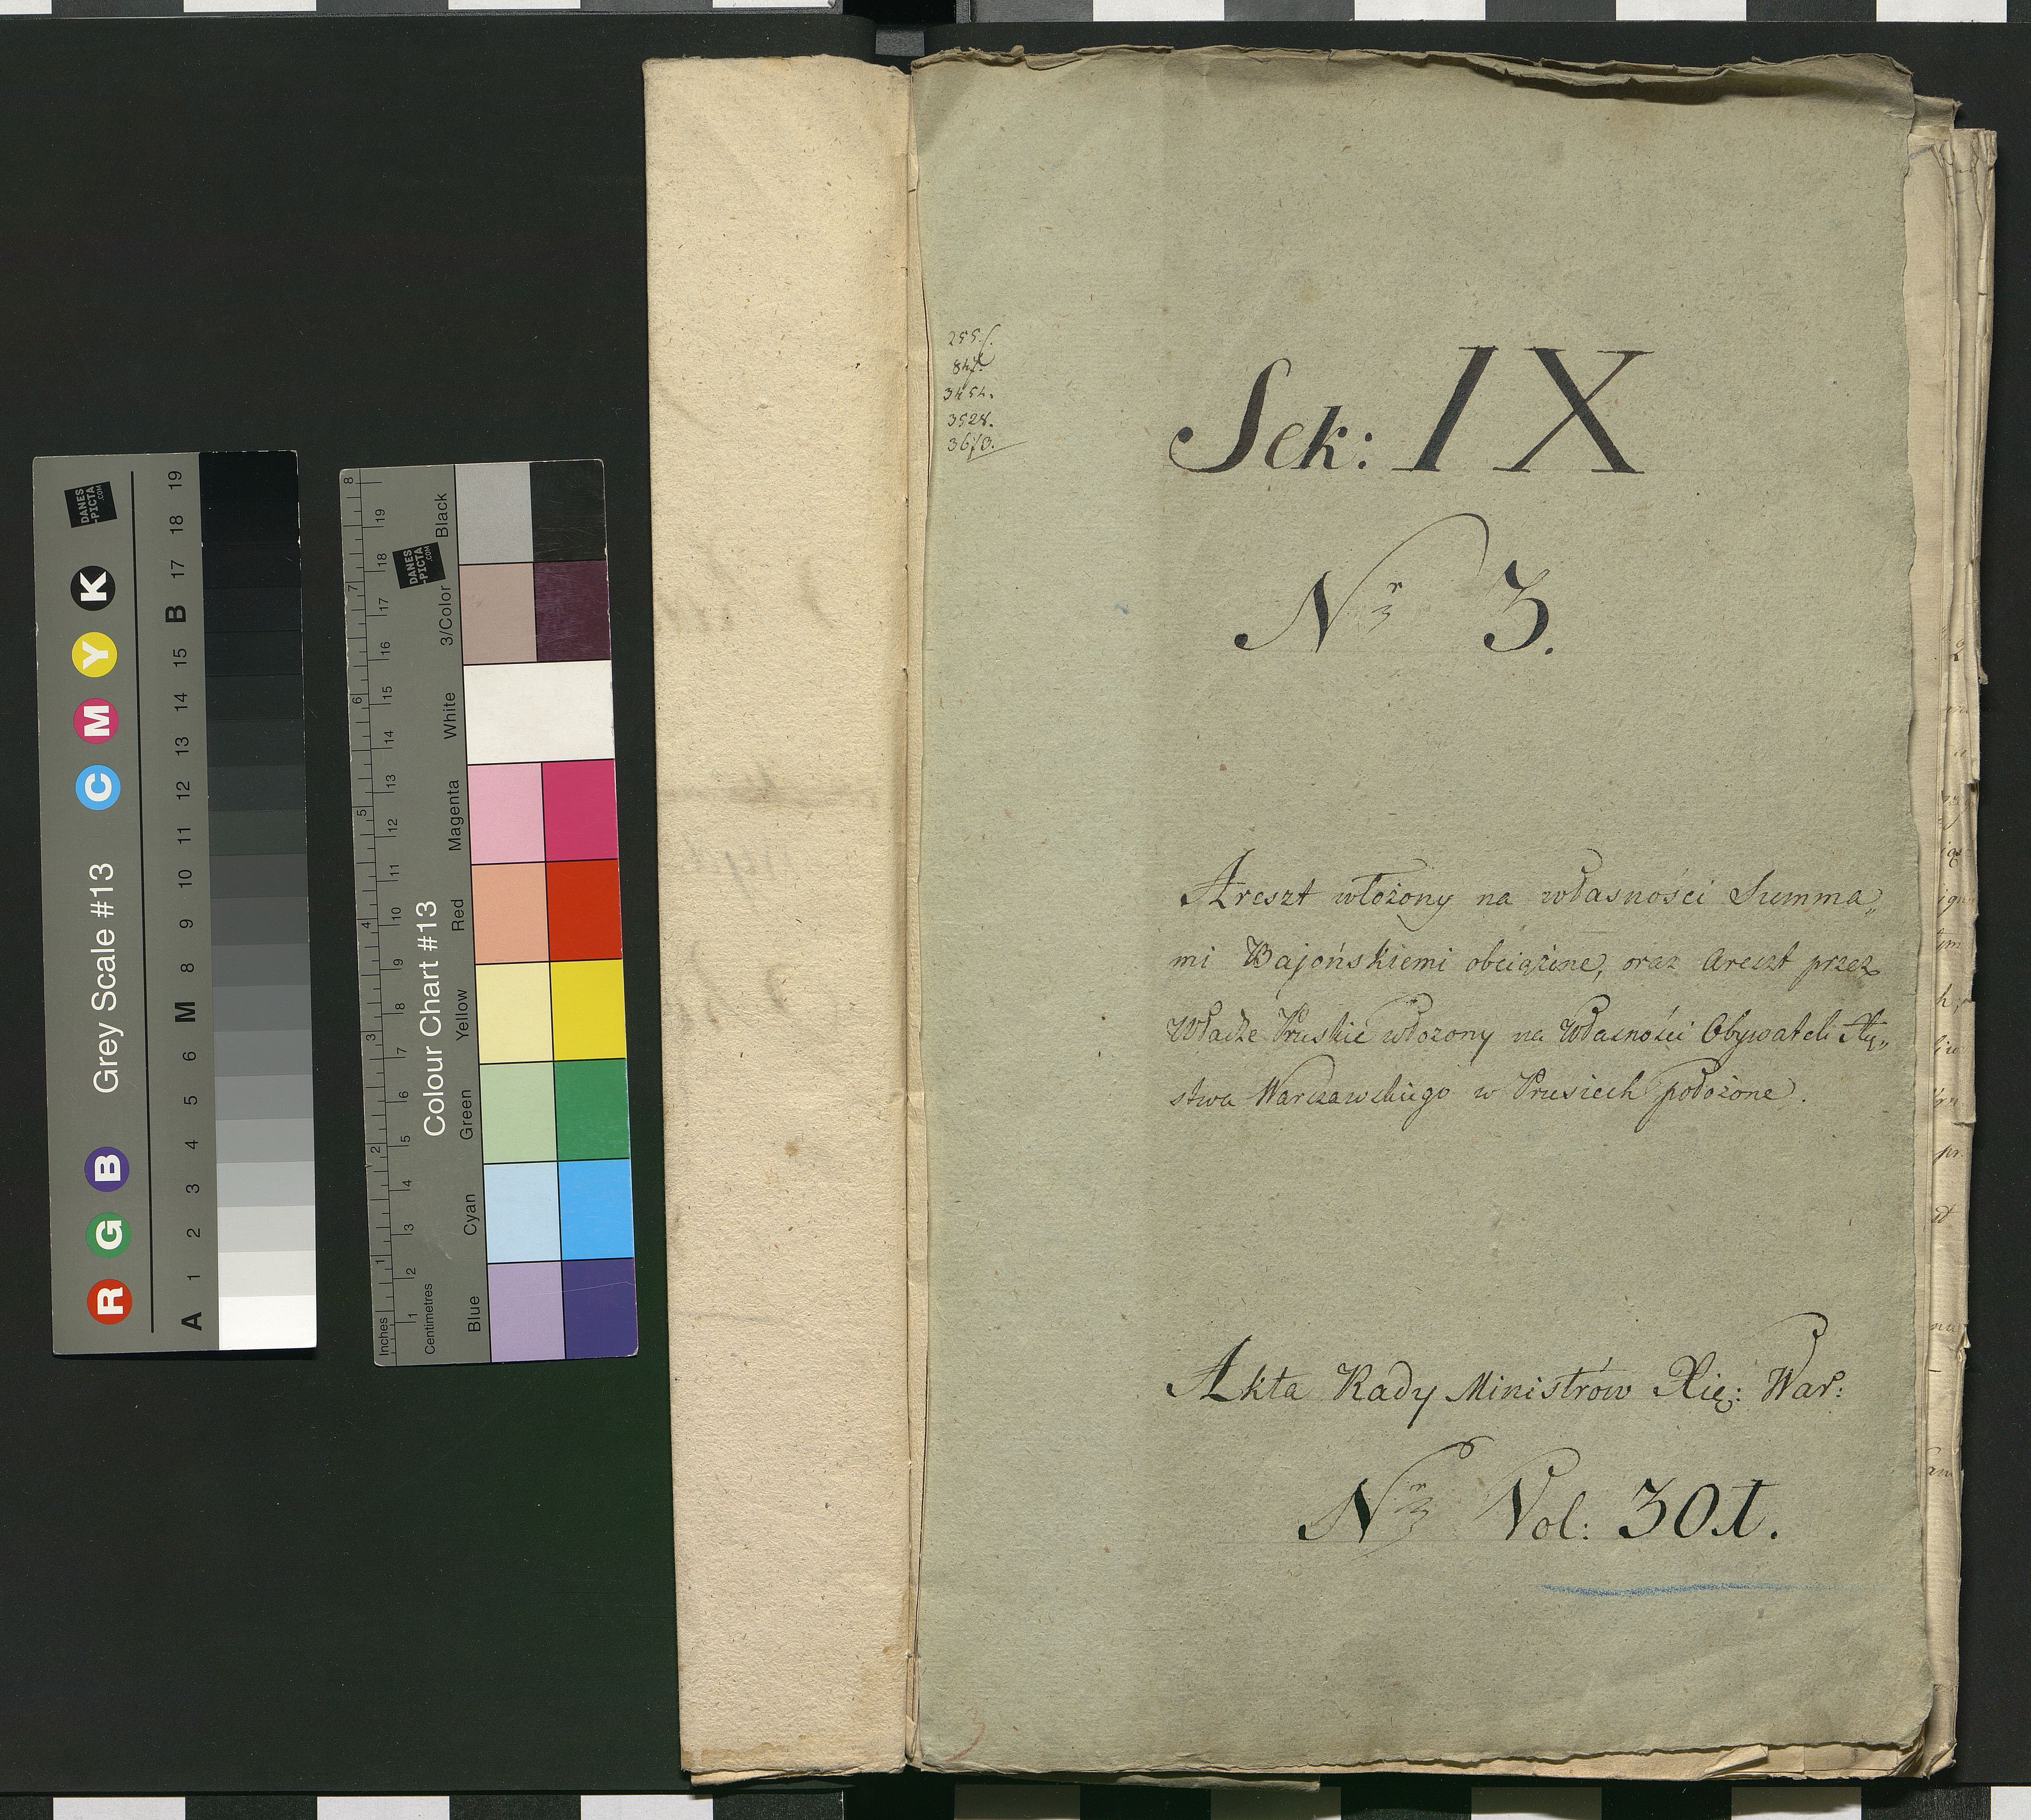 255.
847.
3454.
3528.
3673.
Sek: IX
Nr 3.
Areszt włożony na własności Summa„
mi Bajońskiemi obciążone, oraz Areszt przez
Władze Pruskie włożony na Własności Obywateli Xię„
stwa Warszawskiego w Prusiech położone.
Akta Rady Ministrów Xię: War:
Nr Vol: 301.
3
Grey Scale #13
R G B C M Y K
A 1 2 3 4 5 6 M 8 9 10 11 12 13 14 15 B 17 18 19
DANES
-PICTA
.COM
Colour Chart #13
Inches 1 2 3 4 5 6 7 8
Centimetres 1 2 3 4 5 6 7 8 9 10 11 12 13 14 15 16 17 18 19
Blue Cyan Green Yellow Red Magenta White 3/Color Black
DANES
-PICTA
.COM